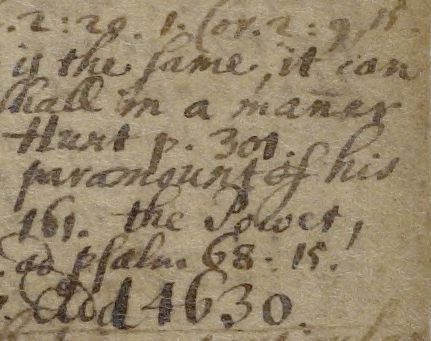 .2:20. 1. Cor. 2:9, 15.
is the same, it can
shall in a maner
Hunt p. 301.
paramount of his
161. the Power,
as psalm 68. 15.
Add 4630.